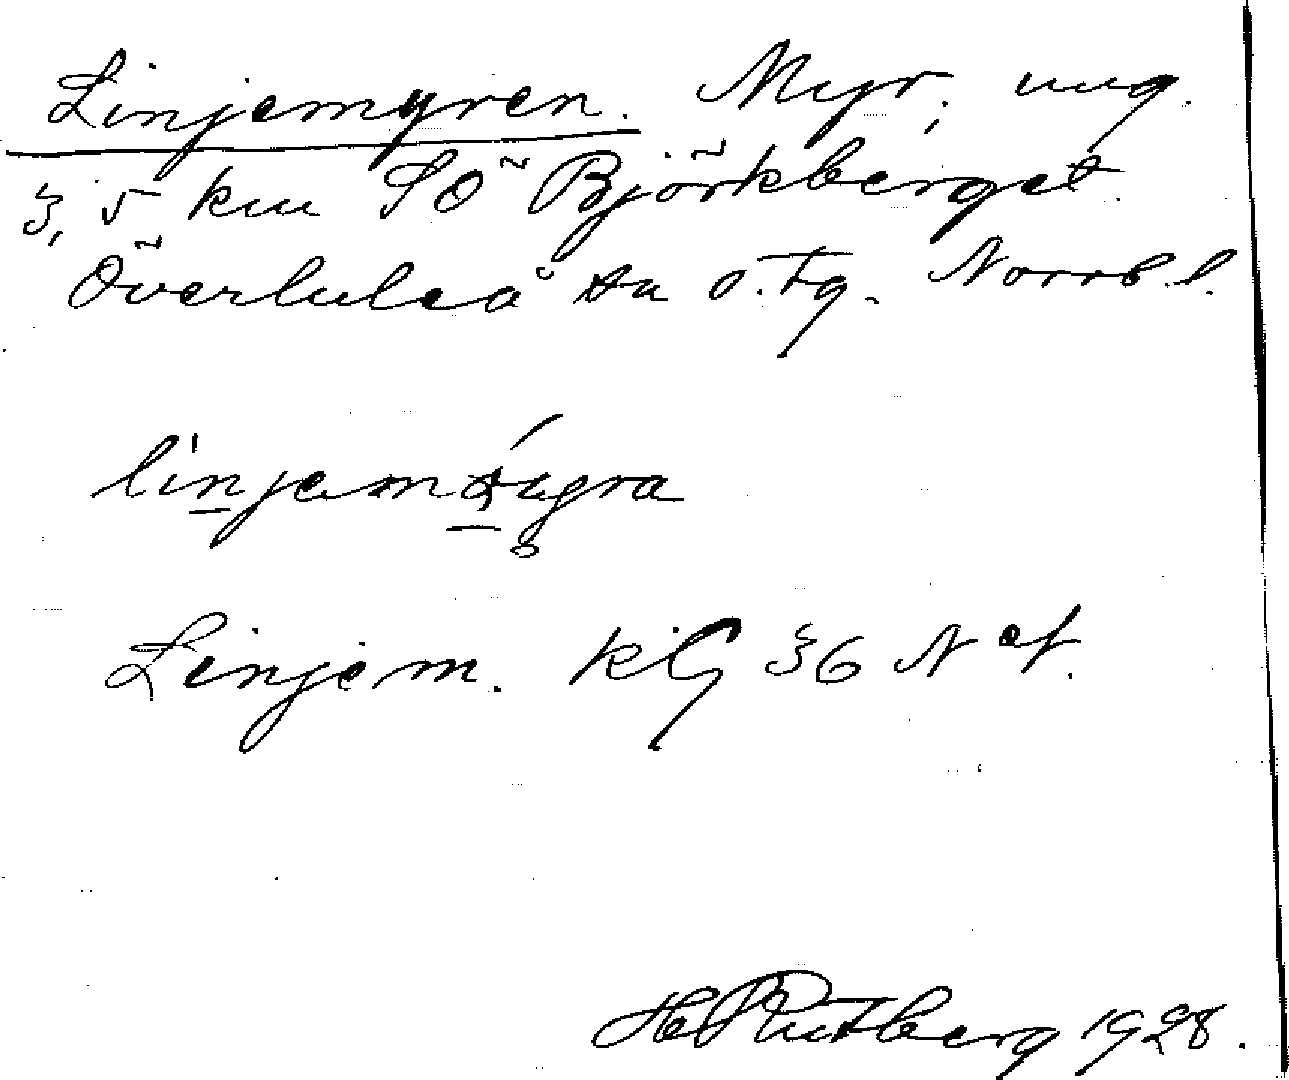 Linjemyren. Myr, ung.
3,5 km SÖ Björkberget
Överluleå sn o. tg. Norrb. l.
Linjem. kG 36 N ef.
H Rutberg 1928.